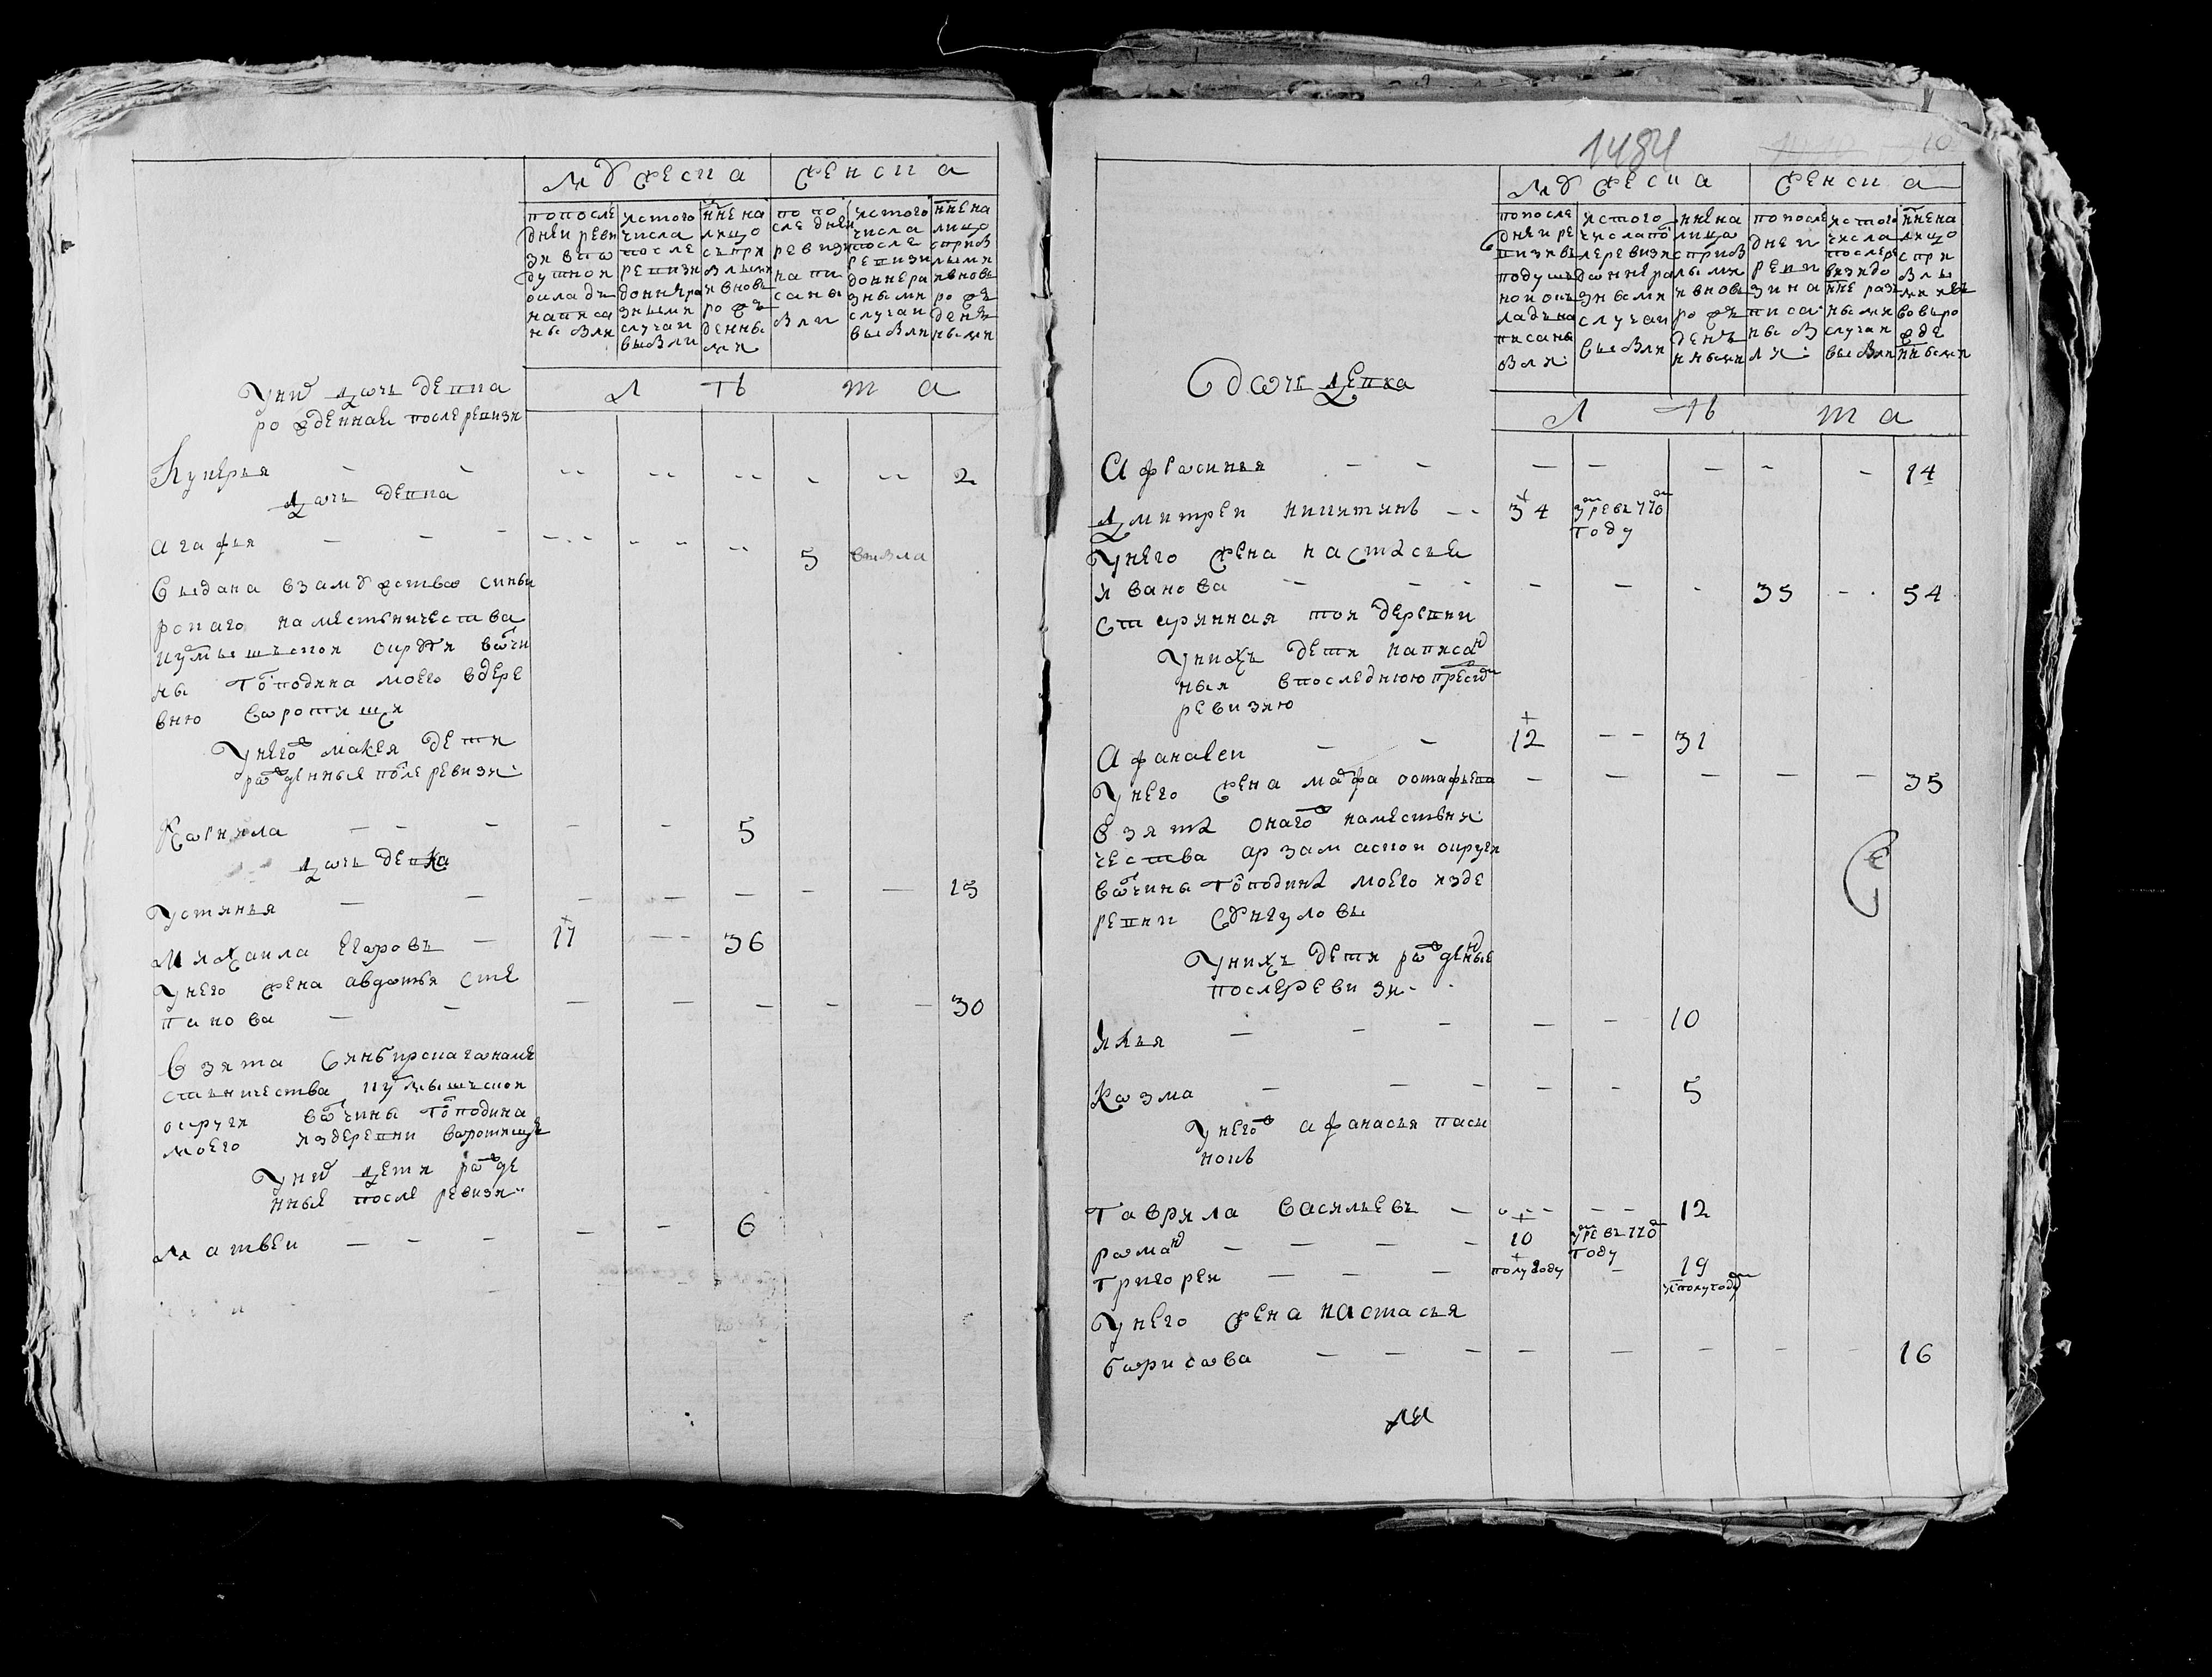 мужеска женска
попосле днеи реви зи впо душнои окладъ написа ны были
исътого числа после ревизи доннера зными случаи выбыли
нне на лицо съпри былыми ивновь рожъ денны ми
по по сле днеи ревизи напи саны были
исътого числа после ревизи доннера зными случаи выбыли
нне на лицо сприб лыми ивновь рожъ денъ ными
Униⷯ дочь девка
рожденная послеревизи
л ѣ т а
Лукерья - - - - - - - 2
дочь девка
агафья - - - - - - 5 выбыла
Выдана взамужство синби
рскаго наместничества
кумышъскои округи вочи
ны господина моего вдере
вню Воротищи
Унегоⷤ мокея дети
рожденные после ревизи
Корнила - - - - - 5
дочь девка
Устинья - - - - - - - 15
михаила егоровъ - 17 - - 36
Унего жена авдотья сте
панова - - - - - - - 30
Взята Синбирскагонаме
стъничества кумышъскои
округи вочины господина
моего издеревни воротищъ
Униⷯ дети рожде
нные после ревизи
матвеи - - - - - 6
1484
10
мужеска женска
попосле днеи ре визивъ подушъ нои окъ ладъна писаны были
исътого числапо слеревизи доннера зными случаи выбыли
ннена лицо сприб лыми ивновь рожъ денъ нными
попосле днеи реви зина писа ны б ли
исътого числа послере визидо нне разъ ными случаи выбыли
ннена лицо спри блы ми ивъ новьро жде нными
Одочь девка
л ѣ т а
Афросинья - - - - - - - 14
дмитреи никитинъ - - 34 умре въ 770 году
Унего жена настасья
иванова - - - - - - 35 - - 54
старинная тои деревни
Унихъ дети написаⷩ
ныя впоследнюю преⷤ
ревизию
Афанасеи - - 12 - - 31
Унего жена марфа остафьева - - - - - 35
Взята онагоⷤ наместъни
чества арзамаскои округи
вочины господина моего изде
ревни
Унихъ дети рожденⷩые
послеревизи
Илья - - - - - 10
Козма - - - - - 5
Унегоⷤ афанасья пасы
нокъ
гаврила васильевъ - - - - - 12
романⷩ - - - - 10 умре въ 770 году
григореи - - - полугоду - 19 споⷧугоду
Унего жена настасья
борисова - - - - - - - - 16